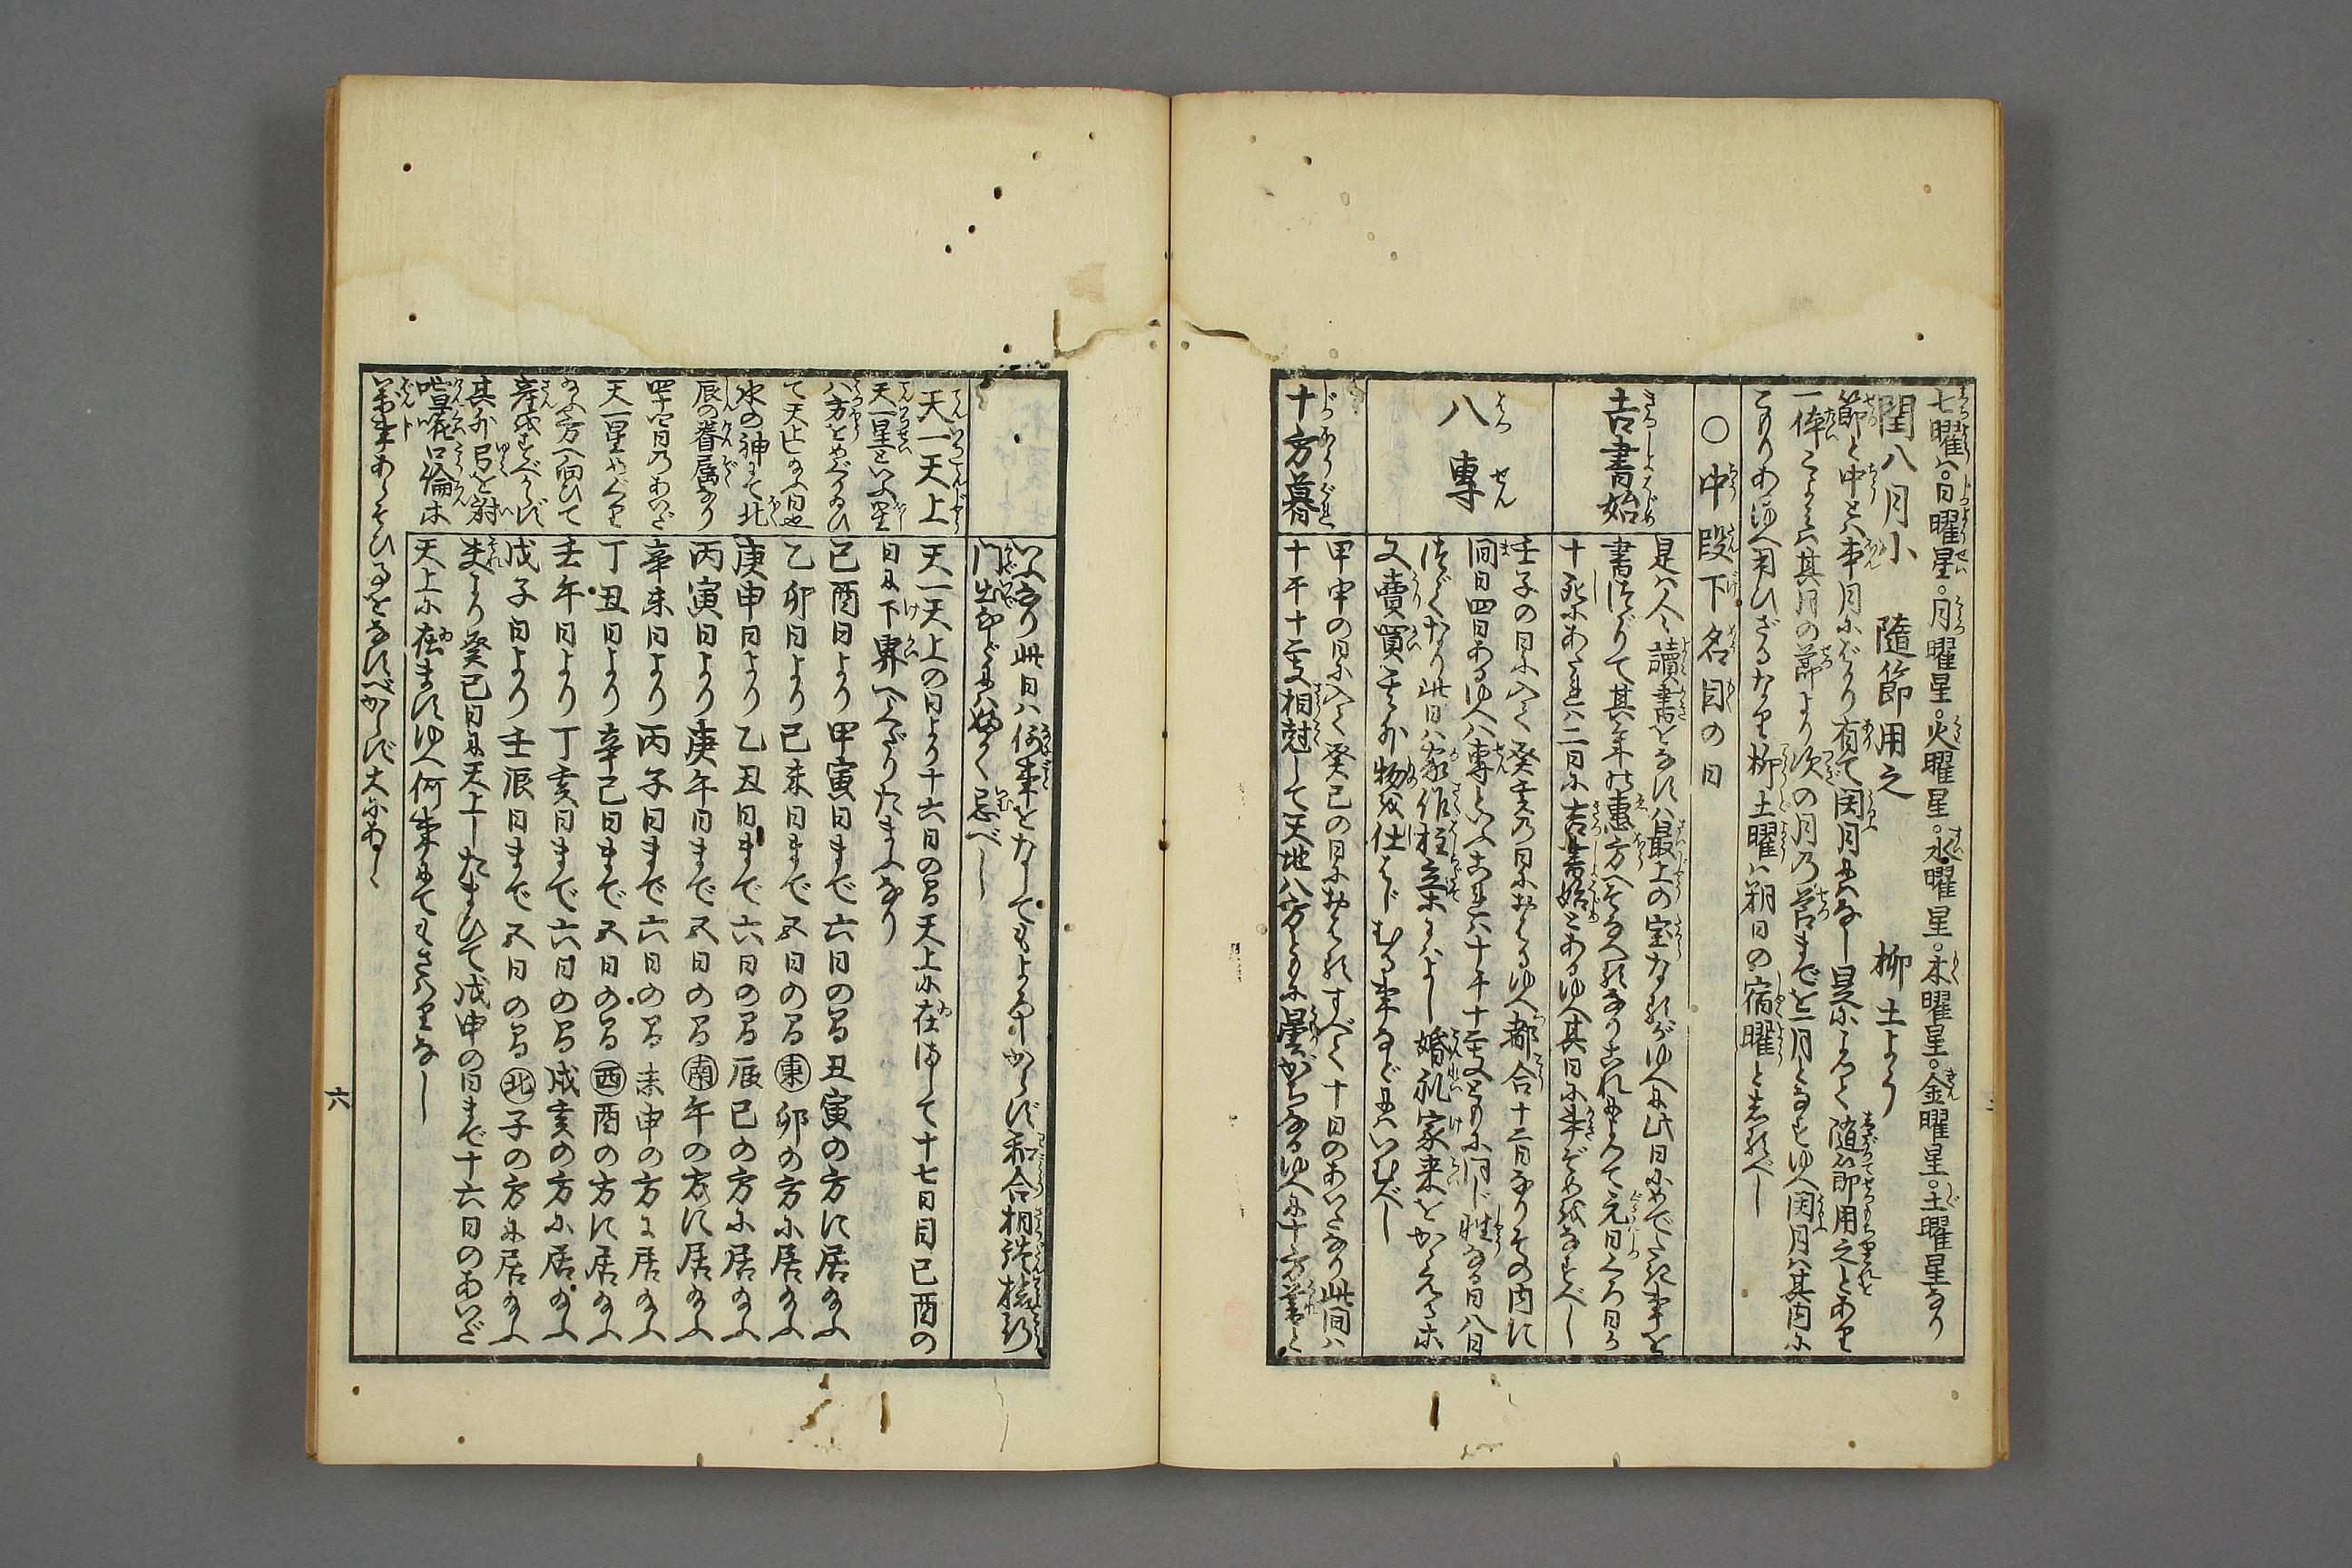 七曜ハ。日曜星。月曜星。火曜星。水曜星。木曜星。金曜星。土曜星なり
閏八月小 隨節用之 柳土よう
節と中とハ本月にばかり有て閏月にハなし是によく随節用之とあり
一体こよみハ其月の節より次の月乃節までを一月となすゆへ閏月ハ其内に
こもりあるゆへ用ひざるなり柳土曜ハ朔日の宿曜と志るべし
○中段下名目の日
吉書始
是ハ人〻讀書をなすハ最上の宝なるがゆへに此日にめでたき事を
書つゞりて其年の惠方へそなへるなりこれによつて元日くろ日か
十死にあたれハ二日に吉書始とあるゆへ其日に書ぞめをなすべし
八專
壬子の日に入て癸亥乃日におはるゆへ都合十二日なりその内に
間日四日あるゆへ八專といふこれハ十干十二支ともに同じ性なる日八日
つゞくなり此日ハ家作柱立等にハよし婚礼家来をかゝえる等
又賣買其外物を仕はじむる事などにハいむべし
十方暮
甲申の日に入て癸巳の日におはるすべて十日のあいだなり此間ハ
十干十二支相尅して天地八方ともに曇がちなるゆへに十方暮と
いふなり此日ハ何事をなしてもよろしからず和合相談椽組
門出などにハ堅く忌べし
天一天上
天一星といふ星
八方をめぐり給ひ
て天上し給ふ日也
水の神にて北
辰の眷属なり
四十四日乃あいだ
天一星めぐり
給ふ方へ向ひて
産をすべからず
其外弓を射
喧嘩口論等
天一天上の日より十六日の間天上に在まして十七日目己酉の
日に下界へくだりたまふなり
己酉日より甲寅日まで六日の間丑寅の方に居給ふ
乙卯日より己未日まで五日の間東卯の方に居給ふ
庚申日より乙丑日まで六日の間辰巳の方に居給ふ
丙寅日より庚午日まで五日の間南午の方に居給ふ
辛未日より丙子日まで六日の間未申の方に居給ふ
丁丑日より辛巳日まで五日の間西酉の方に居給ふ
壬午日より丁亥日まで六日の間戌亥の方に居給ふ
戊子日より壬辰日まで五日の間北子の方に居給ふ
夫より癸巳日に天上したまひて戊申の日まで十六日のあいだ
天上に在ますゆへ何事にてもさハりなし
諍事あらそひ事をなすべからず大にあしゝ
六